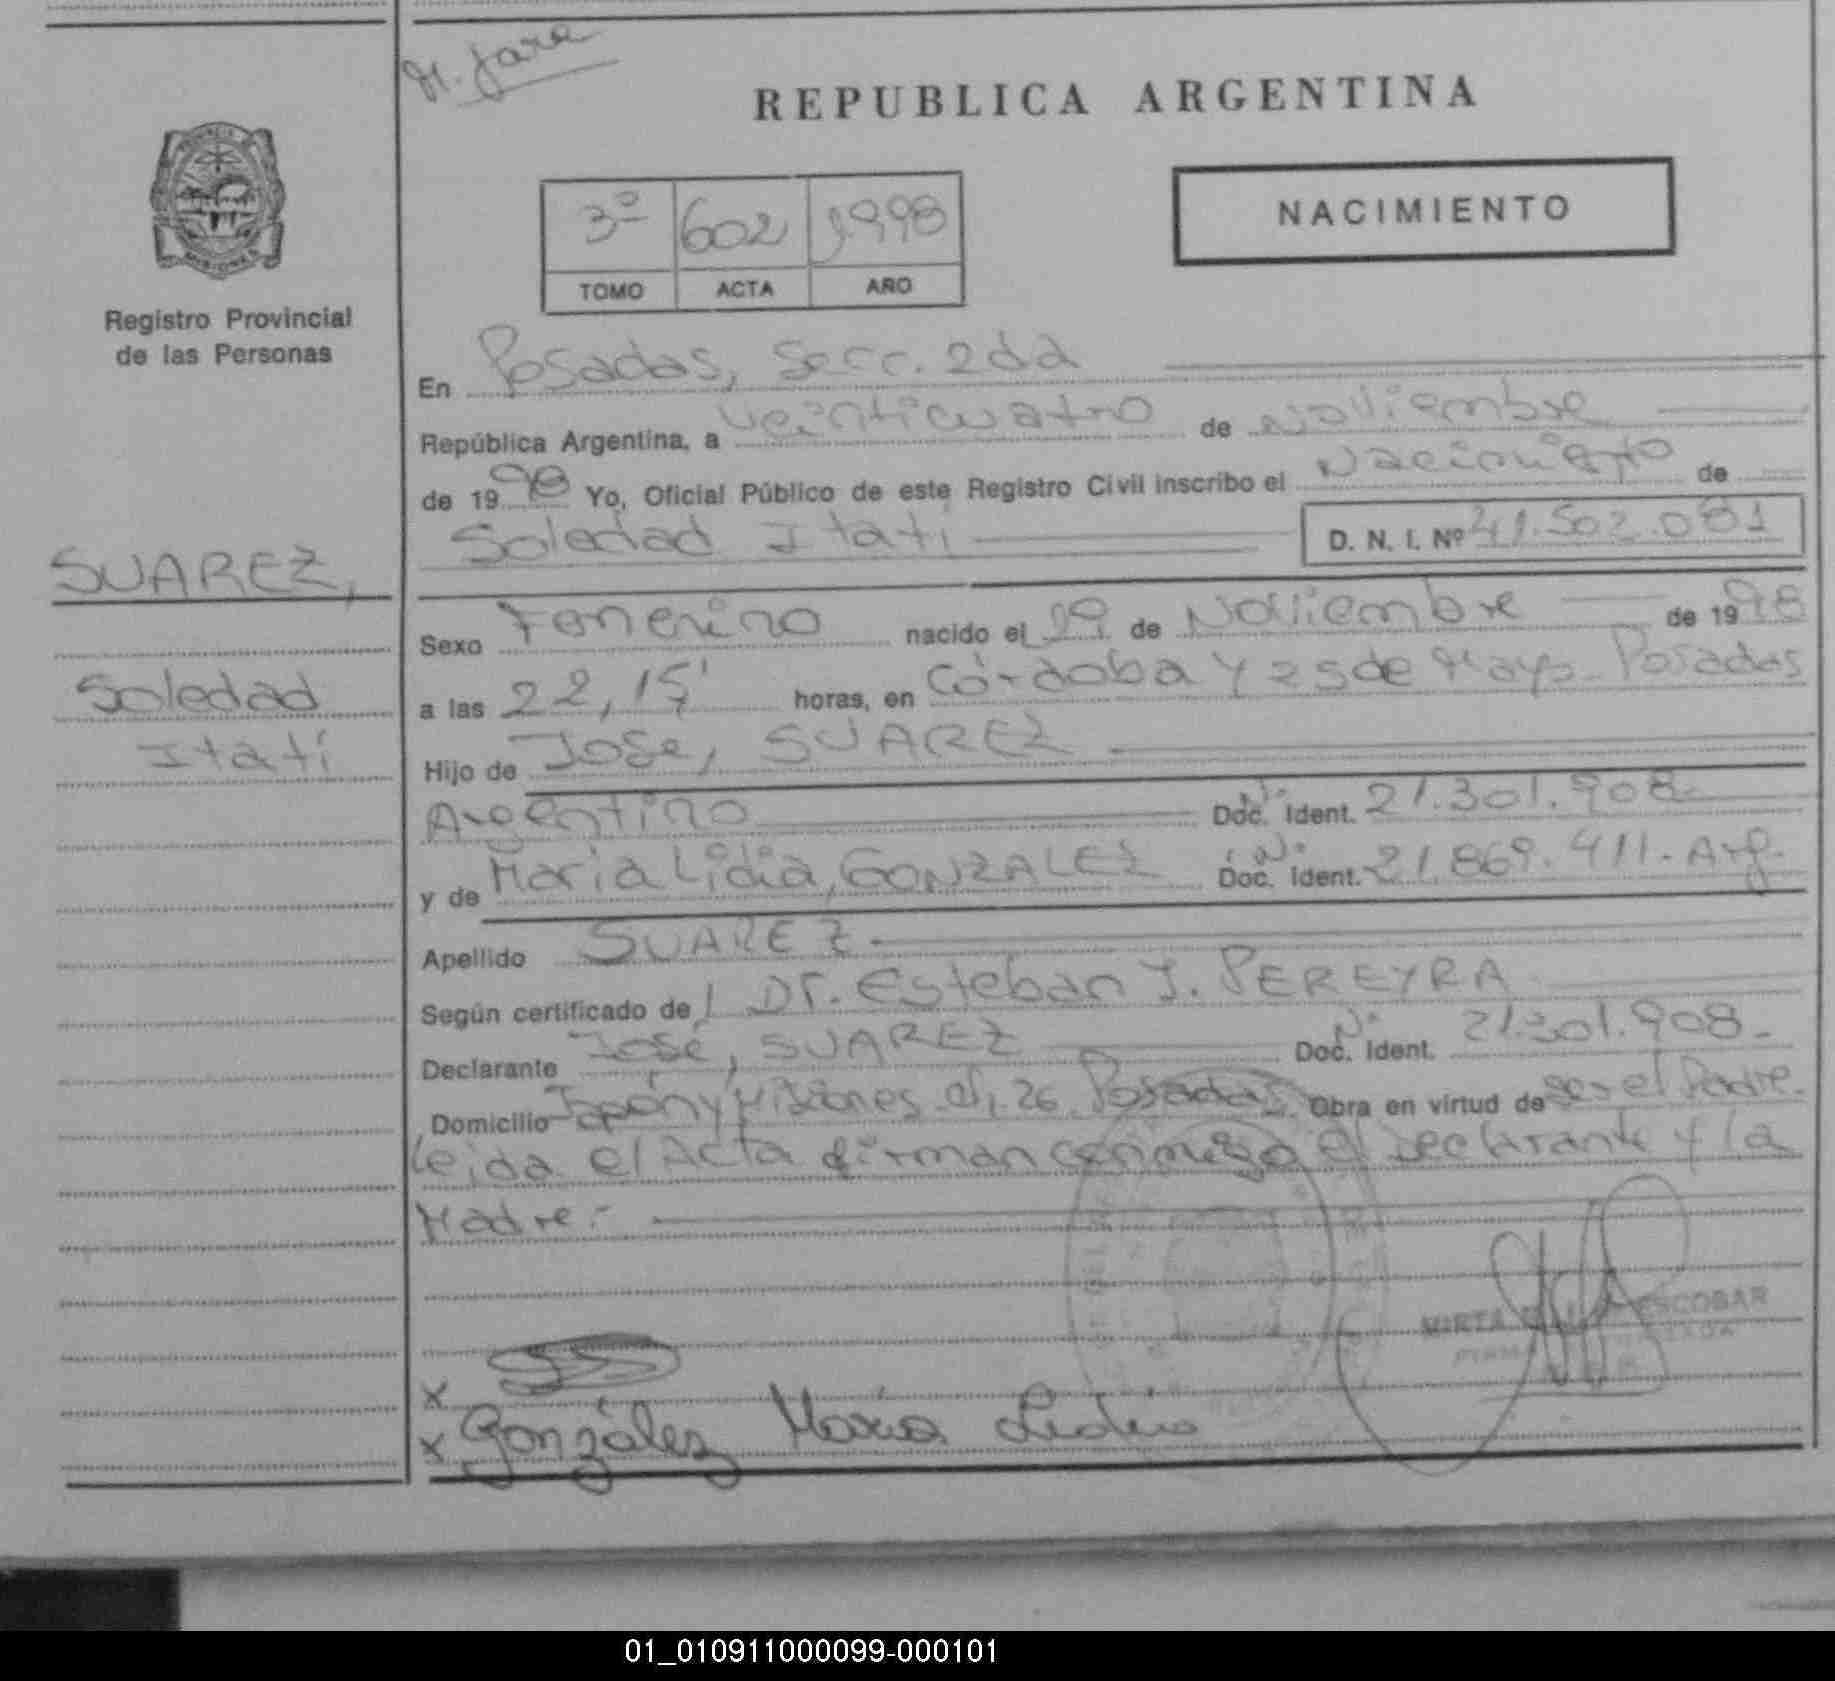 H. Jara
REPUBLICA ARGENTINA
NACIMIENTO
3º 602 1998
TOMO ACTA AÑO
MISIONES
Registro Provincial
de las Personas
En Posadas, Secc. 2da
República Argentina, a veinticuatro de Noviembre
de 1998 Yo, Oficial Público de este Registro Civil inscribo el Nacimiento de
Soledad Itatí D. N. I. Nº 41.502.081
SUAREZ,
Soledad
Itatí
Sexo Femenino nacido el 19 de Noviembre de 1998
a las 22,15' horas, en Córdoba y 25 de Mayo - Posadas
Hijo de José, SUAREZ
Argentino Doc. Ident. Nº 21.301.908-
y de María Lidia, GONZALEZ Doc. Ident. Nº 21.869.411 - Arg.
Apellido SUAREZ
Según certificado de Dr. Esteban J. PEREYRA
Declarante José, SUAREZ Doc. Ident. Nº 21.301.908-
Domicilio Japón y Misiones 26 Posadas Obra en virtud de ser el Padre.
Leida el Acta firman conmigo el Declarante y la
Madre.-
MIRTA ESCOBAR
x
x González María Lidia
01_010911000099-000101